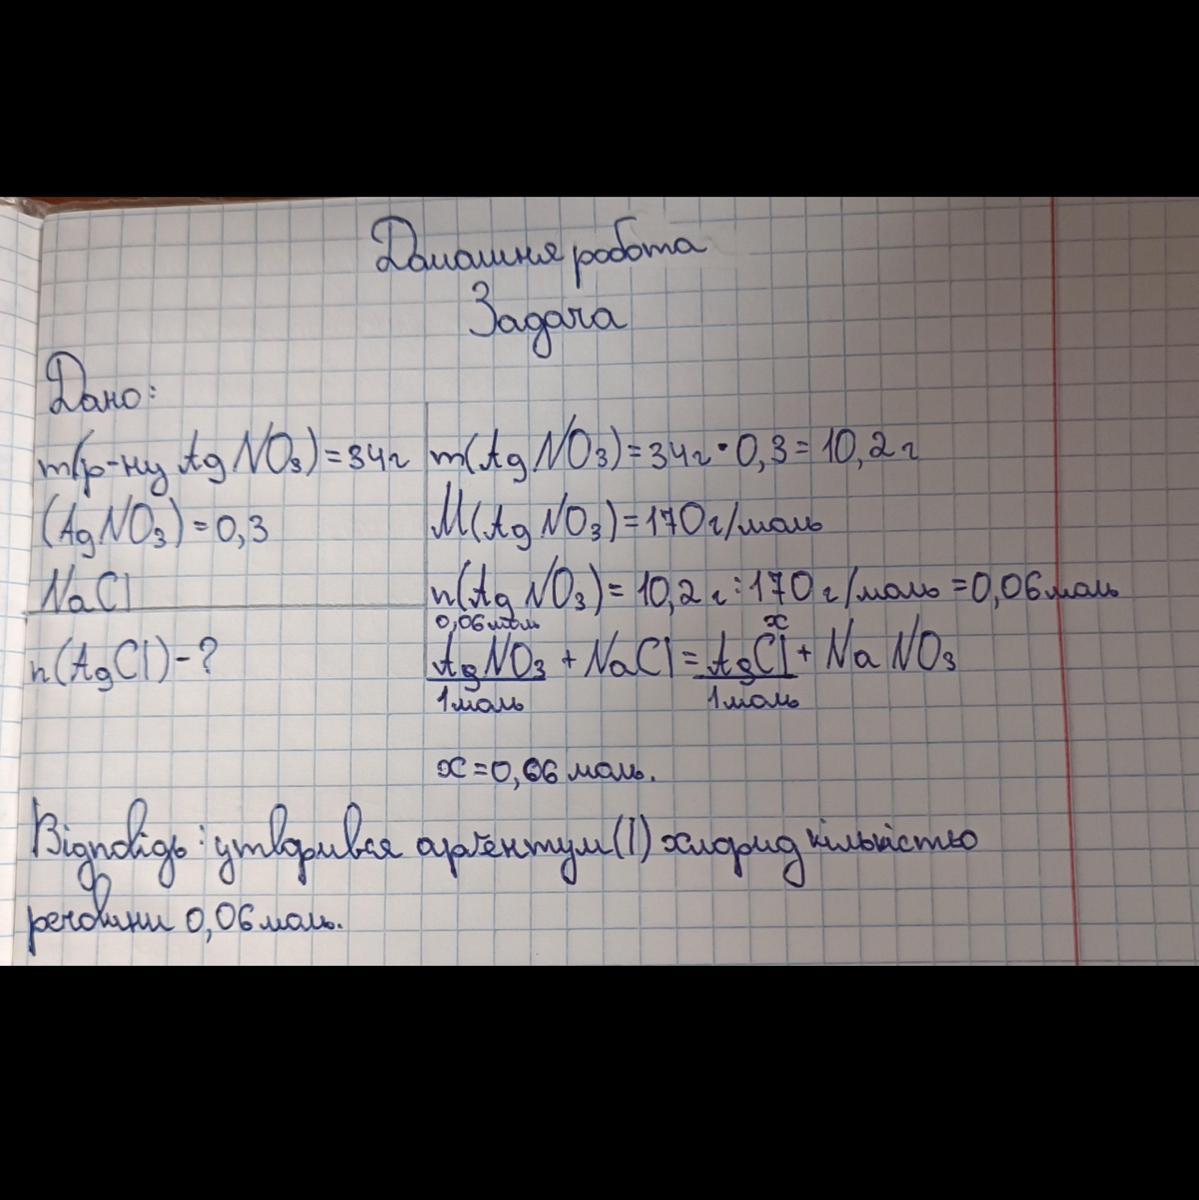 Домашня робота
Задача
Дано:
m(р-ну AgNO₃) = 34г
(AgNO₃) = 0,3
NaCl
n(AgCl) - ?
m(AgNO₃) = 34г · 0,3 = 10,2 г
M(AgNO₃) = 170 г/моль
n(AgNO₃) = 10,2 г : 170 г/моль = 0,06 моль
0,06 моль x
AgNO₃ + NaCl = AgCl + NaNO₃
1 моль 1 моль
x = 0,06 моль.
Відповідь: утворився аргентум (I) хлорид кількістю
речовини 0,06 моль.